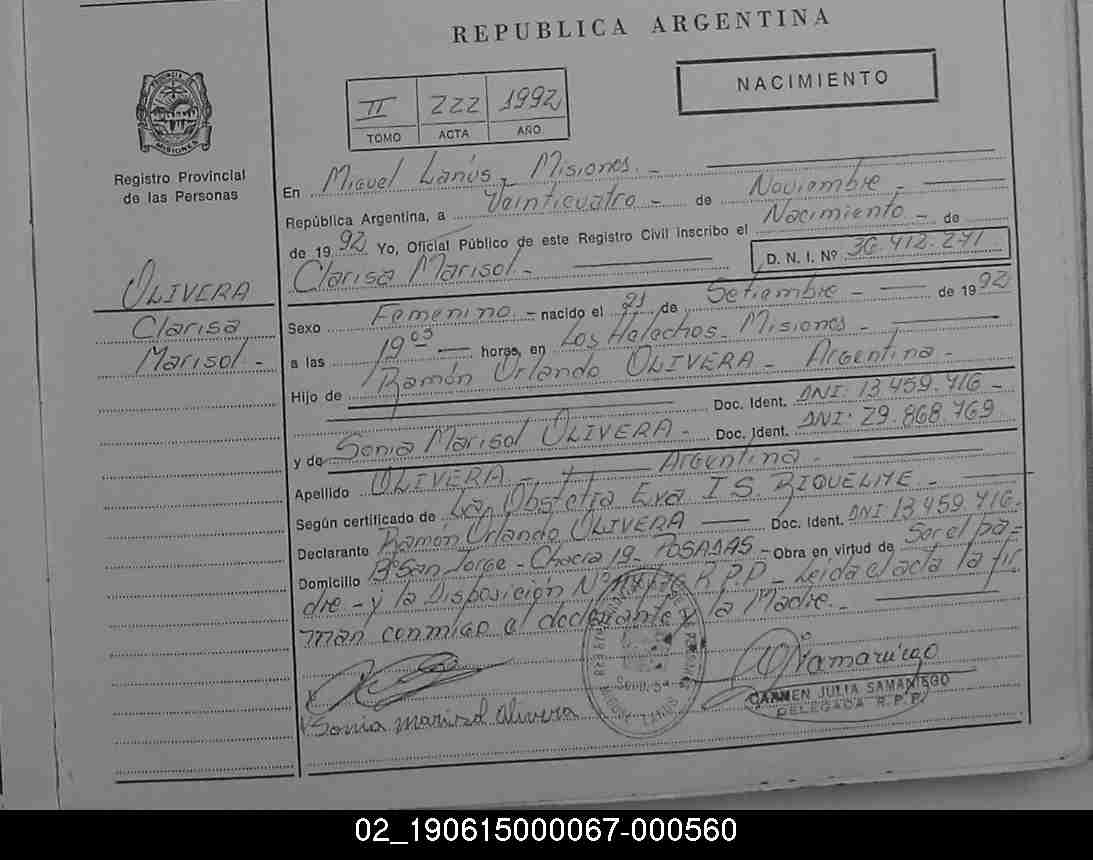 REPUBLICA ARGENTINA
NACIMIENTO
II 222 1992
TOMO ACTA AÑO
PROVINCIA DE MISIONES
Registro Provincial
de las Personas
OLIVERA
Clarisa
Marisol -
En Miguel Lanús - Misiones. -
República Argentina, a Veinticuatro - de Noviembre -
de 1992 Yo, Oficial Público de este Registro Civil inscribo el Nacimiento - de
Clarisa Marisol. - D. N. I. Nº 36.412.271
Sexo Femenino. - nacido el 21 de Setiembre - de 1992
a las 19 05 horas, en Los Helechos. Misiones -
Hijo de Ramón Orlando OLIVERA - Argentina -
Doc. Ident. DNI: 13.459.416 -
y de Sonia Marisol OLIVERA - Doc. Ident. DNI: 29.868.769
Apellido OLIVERA - Argentina. -
Según certificado de La Obstetra Eva I S. RIQUELME -
Declarante Ramón Orlando OLIVERA Doc. Ident. DNI 13.459.416.
Domicilio Bº San Jorge - Chacra 19 - POSADAS - Obra en virtud de Ser el pa=
dre - y la Disposición Nº R P P - Leida el acta la fir
man conmigo el declarante y la Madre. -
Sonia marisol olivera
CARMEN JULIA SAMANIEGO
DELEGADA R.P.P.
02_190615000067-000560